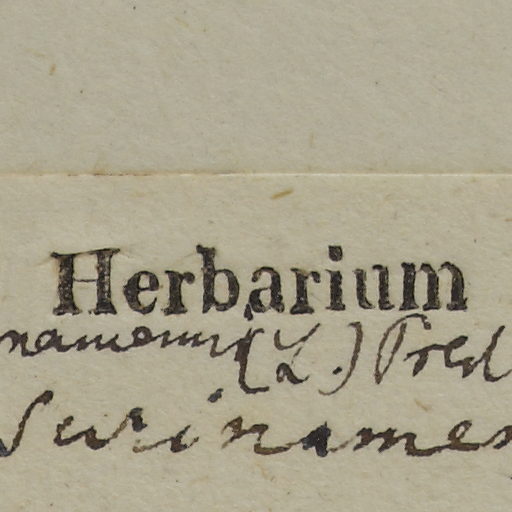 Herbarium
namomum (L.) Pred
Surinamen